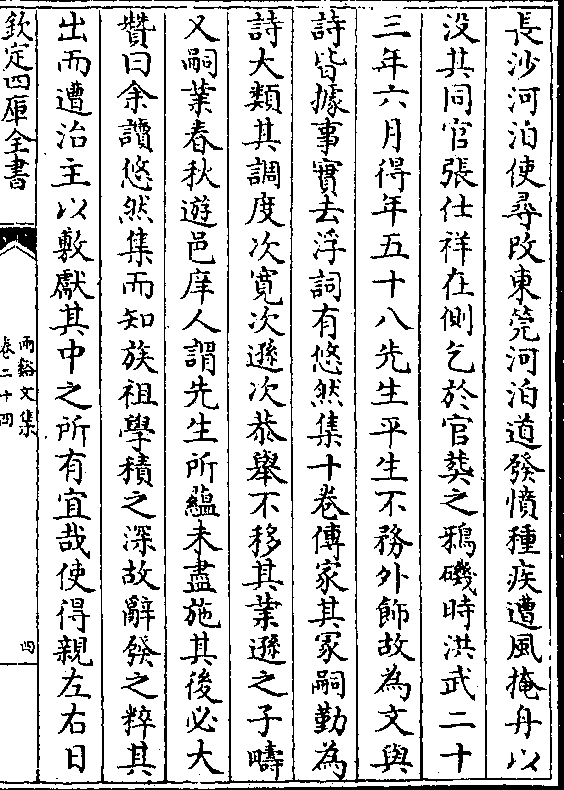 長沙河泊使尋改東筦河泊道發憤種疾遭風掩舟以
没其同官張仕祥在側乞於官葬之鴉磯時洪武二十
三年六月得年五十八先生平生不務外飾故為文與
詩皆據事實去浮詞有悠然集十卷傳家其冢嗣勤為
詩大類其調度次寛次遜次恭舉不移其業遜之子疇
又嗣業春秋遊邑庠人謂先生所蘊未盡施其後必大
贊曰余讀悠然集而知族祖學積之深故辭發之粹其
出而遭治主以敷獻其中之所有宜哉使得親左右日
欽定四庫全書
兩谿文集
卷二十四
四